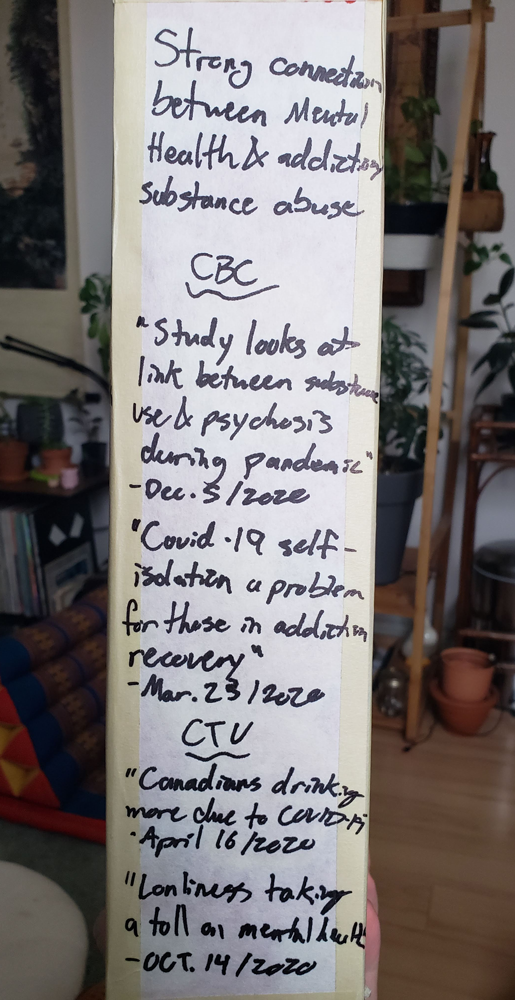 Strong connection
between Mental
Health & addiction
substance abuse
CBC
"Study looks at
link between substance
use & psychosis
during pandemic"
-Dec. 5/2020
"Covid-19 self-
isolation a problem
for those in addiction
recovery"
-Mar. 23/2020
CTV
"Canadians drinking
more due to COVID-19
-April 16/2020
"Lonliness taking
a toll on mental health
-OCT. 14/2020